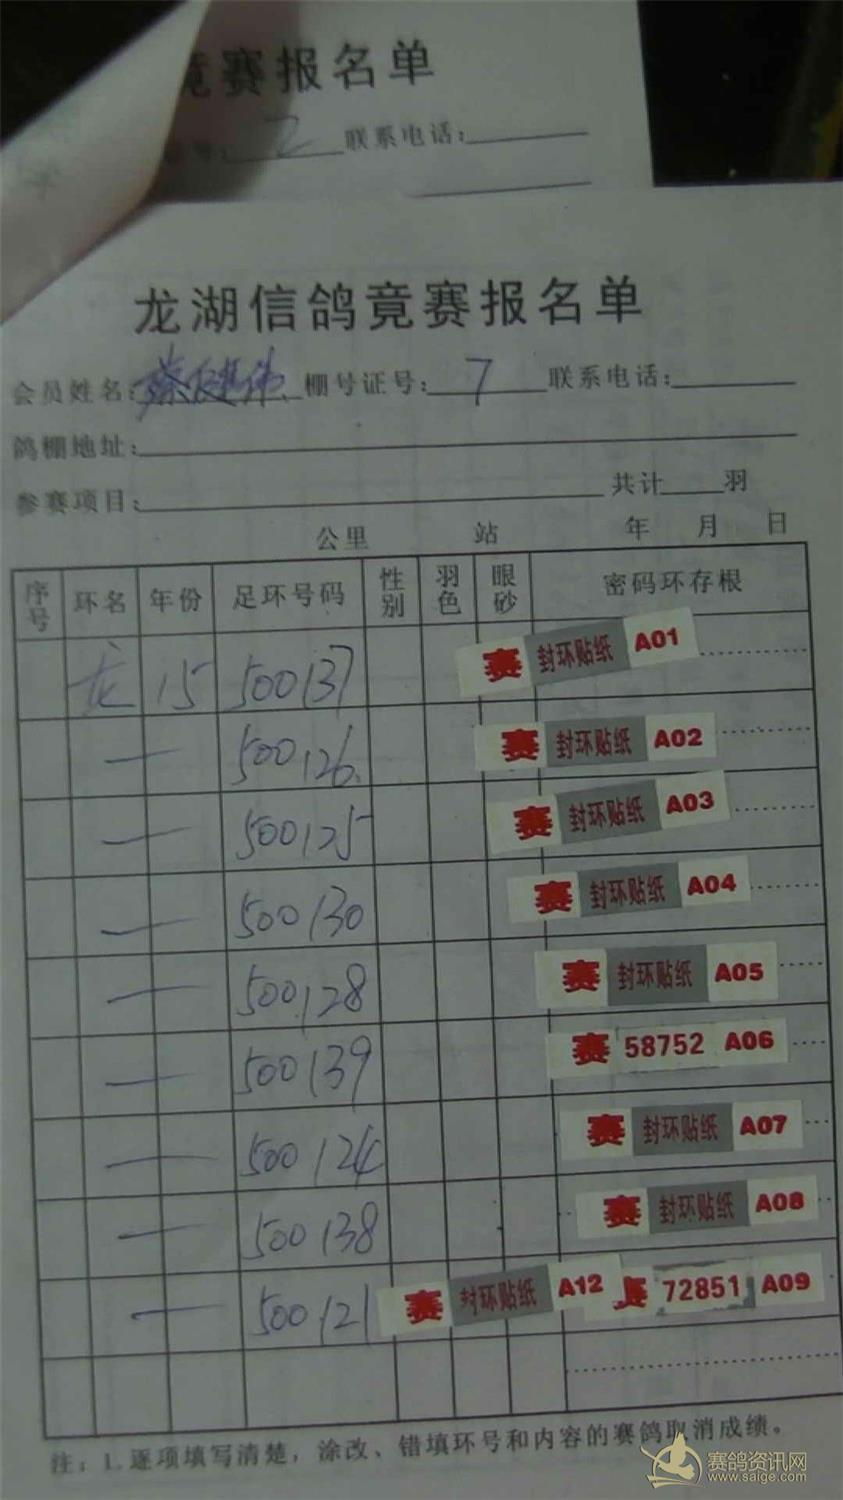 竟赛报名单
号: 2 联系电话:
龙湖信鸽竟赛报名单
会员姓名: 蔡健伟 棚号证号: 7 联系电话:
鸽棚地址:
参赛项目: 共计 羽
公里 站 年 月 日
序号 环名 年份 足环号码 性别 羽色 眼砂 密码环存根
龙 15 500137 赛 封环贴纸 A01
一 500126 赛 封环贴纸 A02
一 500125 赛 封环贴纸 A03
一 500130 赛 封环贴纸 A04
一 500128 赛 封环贴纸 A05
一 500139 赛 58752 A06
一 500124 赛 封环贴纸 A07
一 500138 赛 封环贴纸 A08
一 500121 赛 封环贴纸 A12 赛 72851 A09
注: 1.逐项填写清楚，涂改、错填环号和内容的赛鸽取消成绩。
赛鸽资讯网
www.saige.com